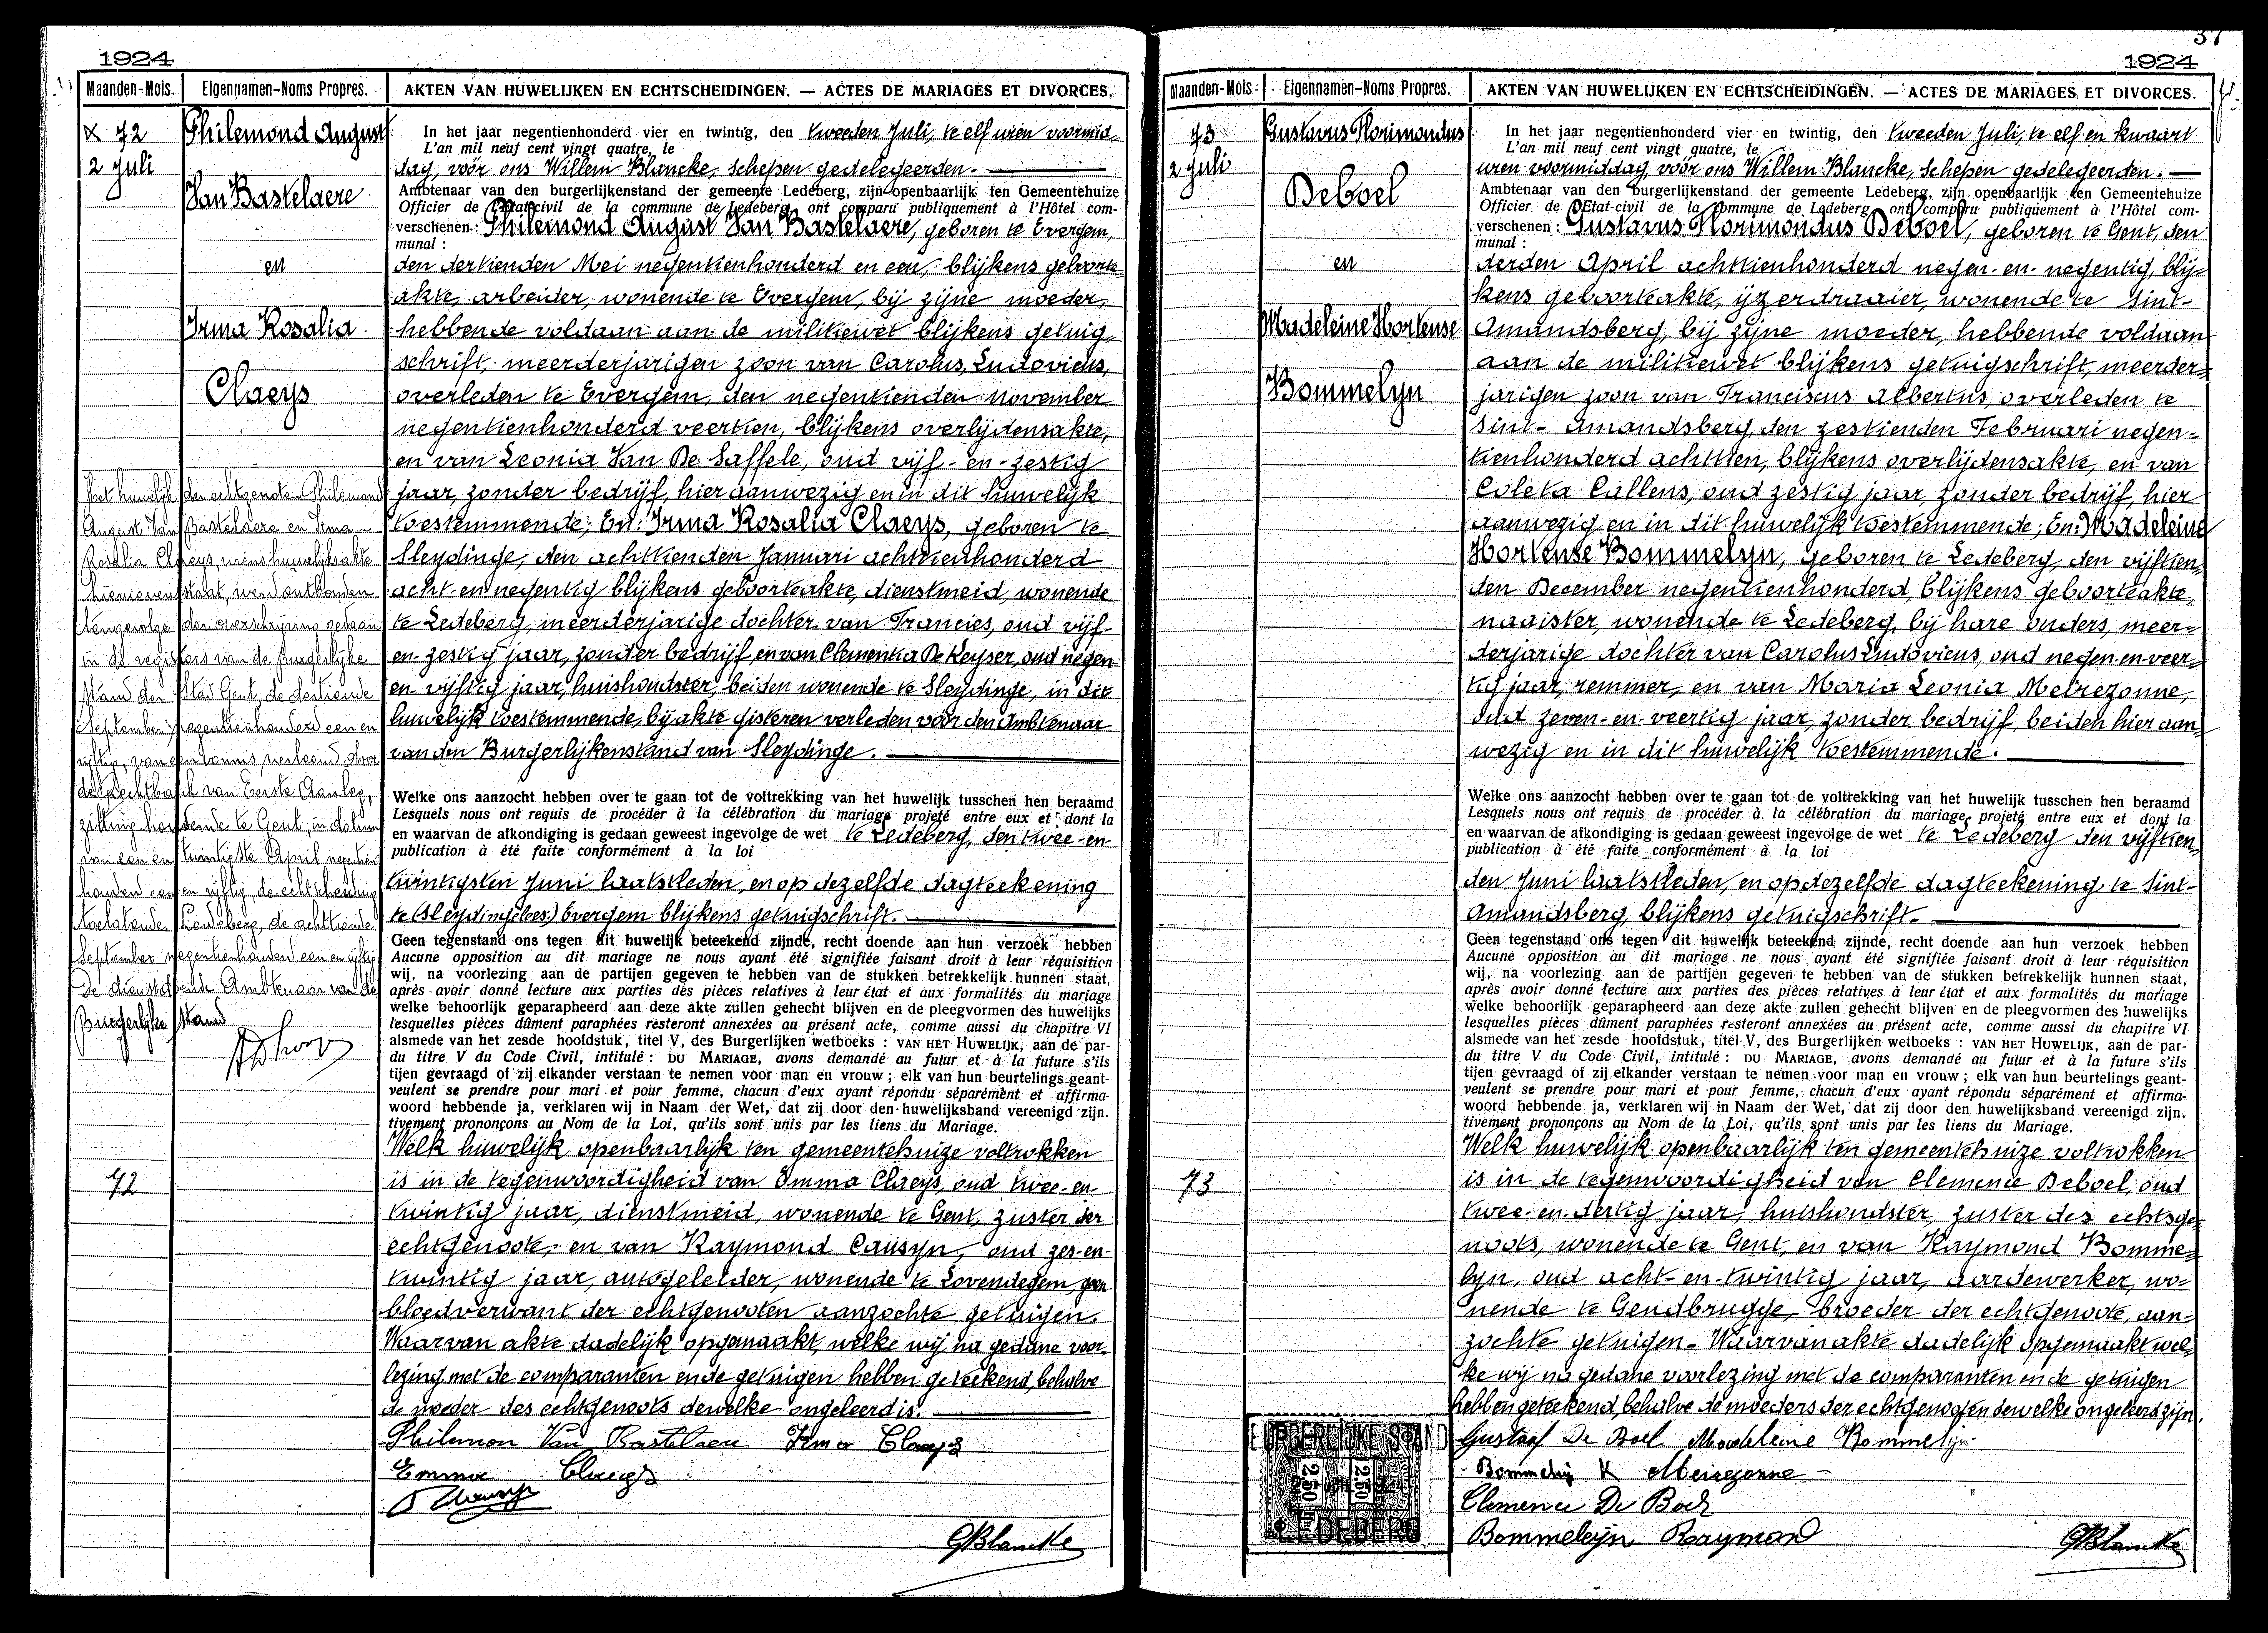 1924
Maanden-Mois. Eigennamen-Noms Propres. AKTEN VAN HUWELIJKEN EN ECHTSCHEIDINGEN. — ACTES DE MARIAGES ET DIVORCES.
72
2 Juli
Philemond August
Van Bastelaere
en
Irma Rosalia
Claeys
In het jaar negentienhonderd vier en twintig, den tweeden Juli, te elf uren voormid-
L'an mil neuf cent vingt quatre, le
dag, vóór ons Willem Blancke, Schepen gedelegeerden.
Ambtenaar van den burgerlijkenstand der gemeente Ledeberg, zijn openbaarlijk ten Gemeentehuize
Officier de l'Etat-civil de la commune de Ledeberg, ont comparu publiquement à l'Hôtel com-
verschenen: Philemond August Van Bastelaere, geboren te Evergem,
munal :
den dertienden Mei negentienhonderd en een, blijkens geboorte-
akte, arbeider, wonende te Evergem, bij zijne moeder,
hebbende voldaan aan de militiewet blijkens getuig-
schrift, meerderjarigen zoon van Carolus, Ludovicus,
overleden te Evergem, den negentienden november
negentienhonderd veertien, blijkens overlijdensakte,
en van Leonia Van De Saffele, oud vijf-en-zestig
jaar, zonder bedrijf, hier aanwezig en in dit huwelijk
toestemmende; En: Irma Rosalia Claeys, geboren te
Sleydinge, den achttienden Januari achttienhonderd
acht-en negentig blijkens geboorteakte, dienstmeid, wonende
te Ledeberg, meerderjarige dochter van Francies, oud vijf-
en-zestig jaar, zonder bedrijf, en van Clementia De Keyser, oud negen
en-vijftig jaar, huishoudster, beiden wonende te Sleydinge, in dit
huwelijk toestemmende, bij akte gisteren verleden vóór den Ambtenaar
van den Burgerlijkenstand van Sleydinge.
Welke ons aanzocht hebben over te gaan tot de voltrekking van het huwelijk tusschen hen beraamd
Lesquels nous ont requis de procéder à la célébration du mariage projeté entre eux et dont la
en waarvan de afkondiging is gedaan geweest ingevolge de wet te Ledeberg, den twee-en-
publication à été faite conformément à la loi
twintigsten Juni laatstleden, en op dezelfde dagteekening
te (Sleydinge lees:) Evergem blijkens getuigschrift.
Geen tegenstand ons tegen dit huwelijk beteekend zijnde, recht doende aan hun verzoek hebben
Aucune opposition au dit mariage ne nous ayant été signifiée faisant droit à leur réquisition
wij, na voorlezing aan de partijen gegeven te hebben van de stukken betrekkelijk hunnen staat,
après avoir donné lecture aux parties des pièces relatives à leur état et aux formalités du mariage
welke behoorlijk geparapheerd aan deze akte zullen gehecht blijven en de pleegvormen des huwelijks
lesquelles pièces dûment paraphées resteront annexées au présent acte, comme aussi du chapitre VI
alsmede van het zesde hoofdstuk, titel V, des Burgerlijken wetboeks : VAN HET HUWELIJK, aan de par-
du titre V du Code Civil, intitulé : DU MARIAGE, avons demandé au futur et à la future s'ils
tijen gevraagd of zij elkander verstaan te nemen voor man en vrouw ; elk van hun beurtelings geant-
veulent se prendre pour mari et pour femme, chacun d'eux ayant répondu séparément et affirma-
woord hebbende ja, verklaren wij in Naam der Wet, dat zij door den huwelijksband vereenigd zijn.
tivement prononçons au Nom de la Loi, qu'ils sont unis par les liens du Mariage.
Welk huwelijk openbaarlijk ten gemeentehuize voltrokken
is in de tegenwoordigheid van Emma Claeys, oud twee-en-
twintig jaar, dienstmeid, wonende te Gent, zuster der
echtgenoote, en van Raymond Causyn, oud zes-en-
twintig jaar, autogeleider, wonende te Lovendegem, geen
bloedverwant der echtgenooten aanzochte getuigen.
Waarvan akte dadelijk opgemaakt, welke wij na gedane voor-
lezing met de comparanten en de getuigen hebben geteekend, behalve
de moeder des echtgenoots dewelke ongeleerd is.
Philemon Van Bastelaere Irma Claeys
Emma Claeys
GBlancke
Het huwelijk der echtgenoten Philemond
August Van Bastelaere en Irma
Rosalia Claeys, wiens huwelijksakte
hiernevenstaat, werd ontbonden
tengevolge der overschrijving gedaan
in de registers van de burgerlijke
stand der stad Gent, de dertiende
September negentienhonderd een en
vijftig, van een vonnis verleend door
de Rechtbank van Eerste Aanleg,
zitting houdende te Gent in datum
van een en twintigste April negentien
honderd een en vijftig, de echtscheiding
toelatende. Ledeberg, de achttiende
September negentienhonderd een en vijftig
De dienstdoende Ambtenaar van de
Burgerlijke Stand
72
1924
Maanden-Mois Eigennamen-Noms Propres. AKTEN VAN HUWELIJKEN EN ECHTSCHEIDINGEN. — ACTES DE MARIAGES ET DIVORCES.
73
2 Juli
Gustavus Florimondus
Deboel
en
Madeleine Hortense
Bommelyn
In het jaar negentienhonderd vier en twintig, den tweeden Juli, te elf en kwaart
L'an mil neuf cent vingt quatre, le
uren voormiddag, vóór ons Willem Blancke, Schepen gedelegeerden.
Ambtenaar van den burgerlijkenstand der gemeente Ledeberg, zijn openbaarlijk ten Gemeentehuize
Officier de l'Etat-civil de la commune de Ledeberg ont comparu publiquement à l'Hôtel com-
verschenen : Gustavus Florimondus Deboel, geboren te Gent, den
munal :
derden April achttienhonderd negen-en-negentig, blij-
kens geboorteakte, ijzerdraaier, wonende te Sint-
Amandsberg, bij zijne moeder, hebbende voldaan
aan de militiewet blijkens getuigschrift, meerder-
jarigen zoon van Franciscus Albertus, overleden te
Sint-Amandsberg, den zestienden Februari negen-
tienhonderd achttien, blijkens overlijdensakte, en van
Coleta Callens, oud zestig jaar, zonder bedrijf, hier
aanwezig en in dit huwelijk toestemmende; En: Madeleine
Hortense Bommelyn, geboren te Ledeberg, den vijftien-
den December negentienhonderd, blijkens geboorteakte,
naaister, wonende te Ledeberg, bij hare ouders, meer-
derjarige dochter van Carolus Ludovicus, oud negen-en-veer-
tig jaar, remmer, en van Maria Leonia Meirezonne,
oud zeven-en-veertig jaar, zonder bedrijf, beiden hier aan-
wezig en in dit huwelijk toestemmende.
Welke ons aanzocht hebben over te gaan tot de voltrekking van het huwelijk tusschen hen beraamd
Lesquels nous ont requis de procéder à la célébration du mariage projeté entre eux et dont la
en waarvan de afkondiging is gedaan geweest ingevolge de wet te Ledeberg den vijftien-
publication à été faite conformément à la loi
den Juni laatstleden, en op dezelfde dagteekening te Sint-
Amandsberg, blijkens getuigschrift.
Geen tegenstand ons tegen dit huwelijk beteekend zijnde, recht doende aan hun verzoek hebben
Aucune opposition au dit mariage ne nous ayant été signifiée faisant droit à leur réquisition
wij, na voorlezing aan de partijen gegeven te hebben van de stukken betrekkelijk hunnen staat,
après avoir donné lecture aux parties des pièces relatives à leur état et aux formalités du mariage
welke behoorlijk geparapheerd aan deze akte zullen gehecht blijven en de pleegvormen des huwelijks
lesquelles pièces dûment paraphées resteront annexées au présent acte, comme aussi du chapitre VI
alsmede van het zesde hoofdstuk, titel V, des Burgerlijken wetboeks : VAN HET HUWELIJK, aan de par-
du titre V du Code Civil, intitulé : DU MARIAGE, avons demandé au futur et à la future s'ils
tijen gevraagd of zij elkander verstaan te nemen voor man en vrouw ; elk van hun beurtelings geant-
veulent se prendre pour mari et pour femme, chacun d'eux ayant répondu séparément et affirma-
woord hebbende ja, verklaren wij in Naam der Wet, dat zij door den huwelijksband vereenigd zijn.
tivement prononçons au Nom de la Loi, qu'ils sont unis par les liens du Mariage.
Welk huwelijk openbaarlijk ten gemeentehuize voltrokken
is in de tegenwoordigheid van Clemence Deboel, oud
twee-en-dertig jaar, huishoudster, zuster des echtge-
noots, wonende te Gent, en van Raymond Bomme-
lyn, oud acht-en-twintig jaar, aardewerker, wo-
nende te Gendbrugge, broeder der echtgenoote, aan-
zochte getuigen. Waarvan akte dadelijk opgemaakt wel-
ke wij na gedane voorlezing met de comparanten en de getuigen
hebben geteekend, behalve de moeders der echtgenooten dewelke ongeleerd zijn.
Gustaaf De Boel Madeleine Bommelijn
Bommelijn K Meirezonne
Clemence De Boel
Bommeleijn Raymond
GBlancke
73
BURGERLIJKE STAND
2.50 2.50
LEDEBERG